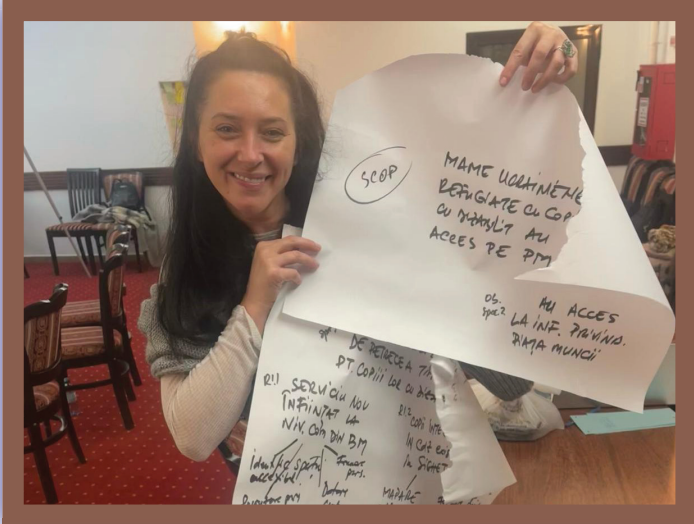 SCOP
MAME UCRAINENE
REFUGIATE CU COP
CU DIZABLIT AU
ACCES PE PM
Ob.
spec.2
AU ACCES
LA INF. PRIVIND.
PIAȚA MUNCII
DE PETRECE A
PT. COPIII LOR CU
R1.1
SERVICIU NOU
ÎNFIINȚAT LA
NIV. COM DIN BM
R1.2 COPII
ÎN
ÎN SIGHET
spațiu
accesibil
MAPARE